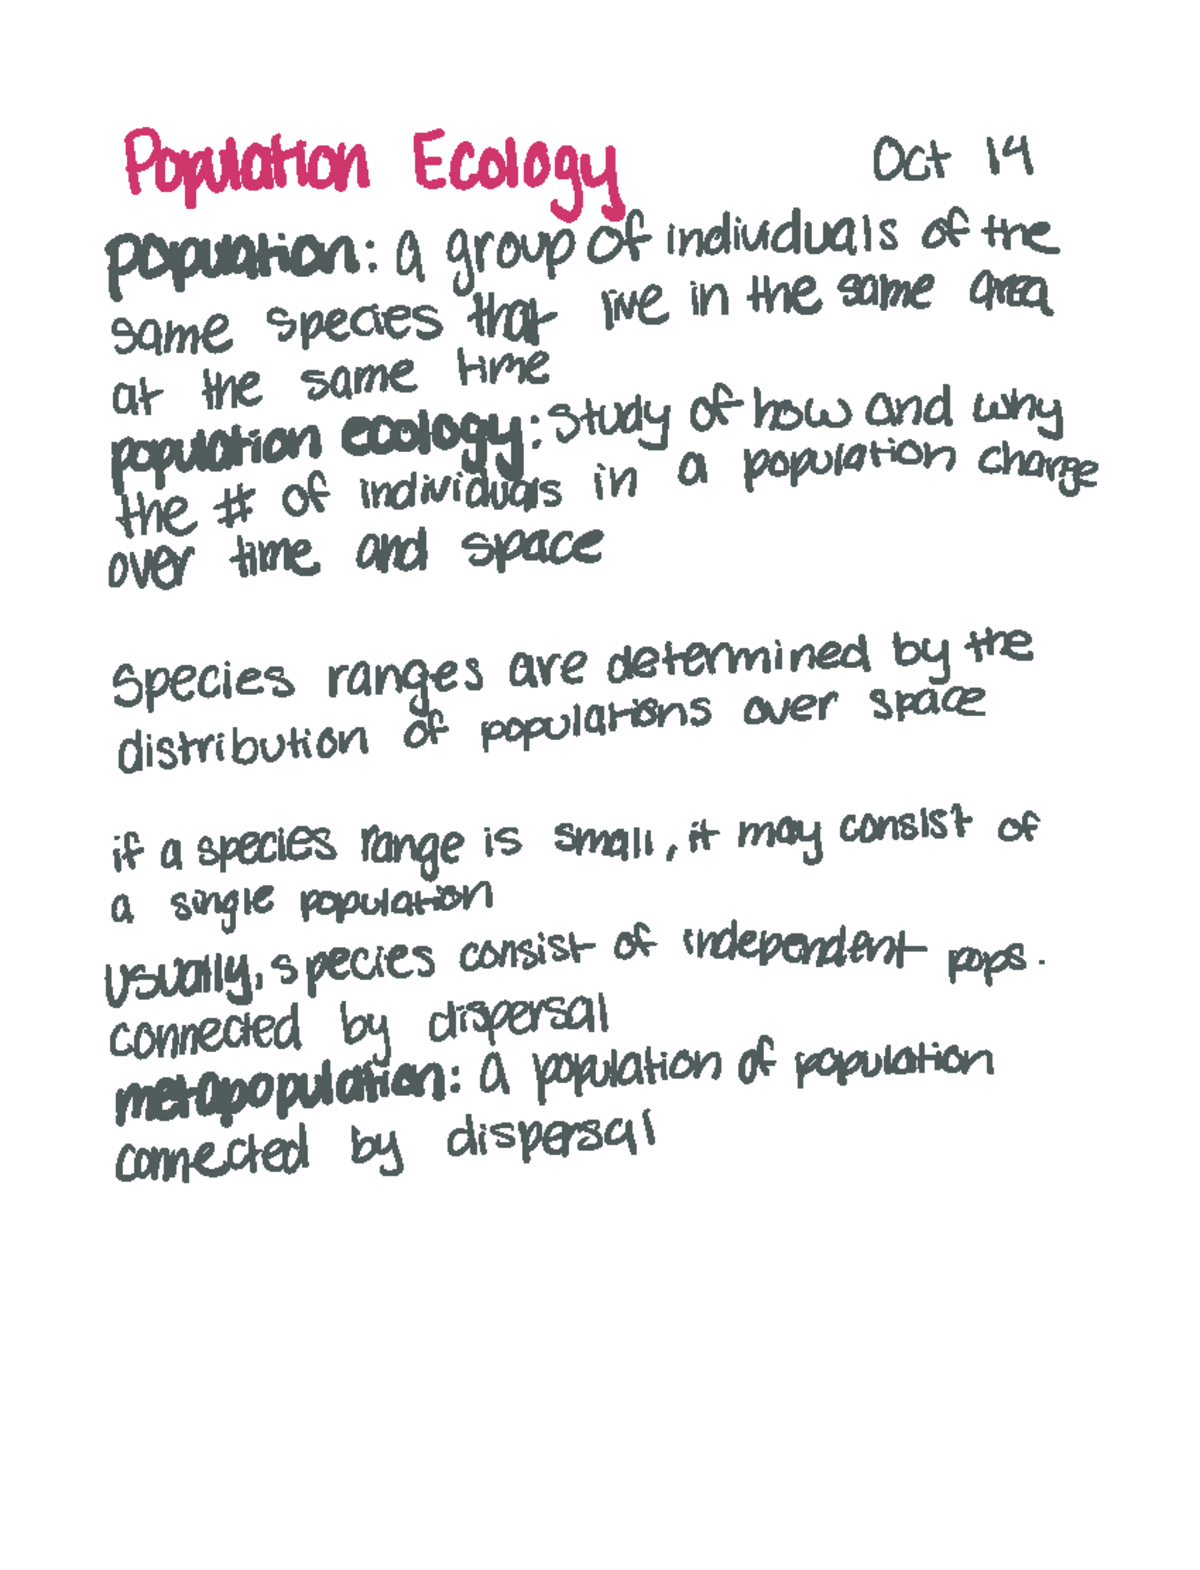 Population Ecology Oct 14
population: a group of individuals of the
same species that live in the same area
at the same time
population ecology: study of how and why
the # of individuals in a population change
over time and space
Species ranges are determined by the
distribution of populations over space
if a species range is small, it may consist of
a single population
usually, species consist of independent pops.
connected by dispersal
metapopulation: a population of population
connected by dispersal